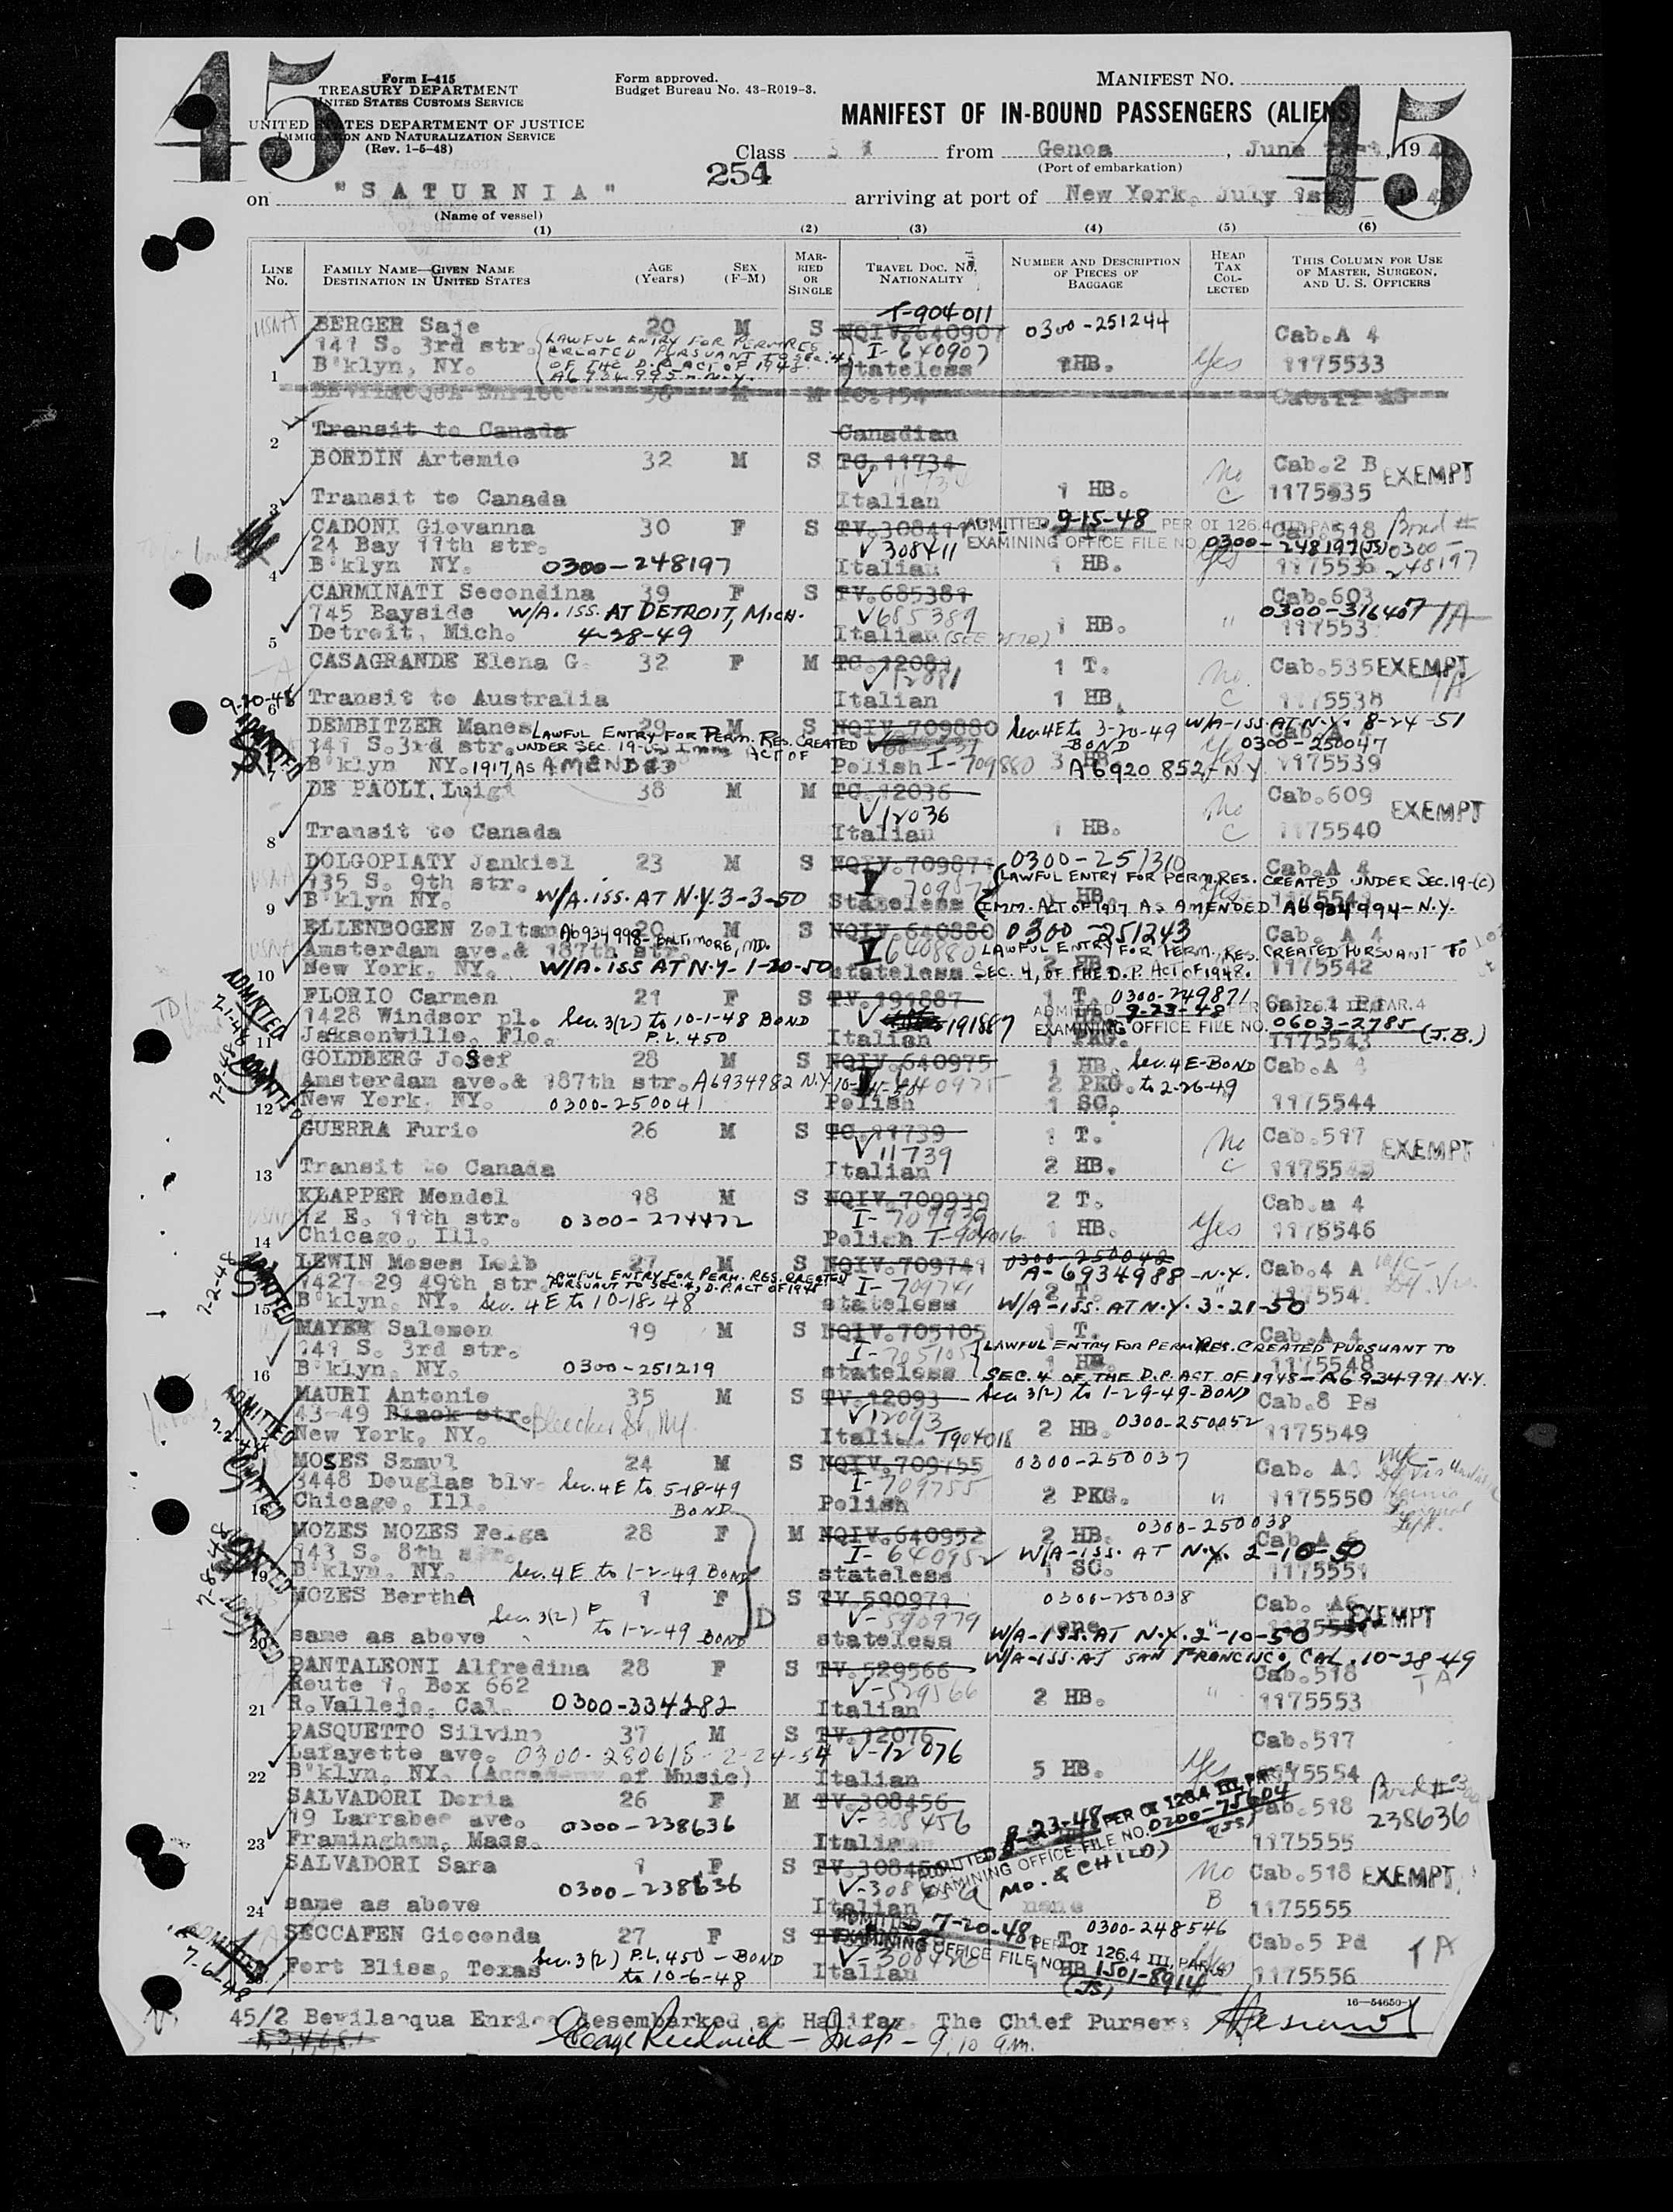 45 45
Form I-415
TREASURY DEPARTMENT
UNITED STATES CUSTOMS SERVICE
UNITED STATES DEPARTMENT OF JUSTICE
IMMIGRATION AND NATURALIZATION SERVICE
(Rev. 1-5-48)
Form approved.
Budget Bureau No. 43-R019-3.
MANIFEST NO.
MANIFEST OF IN-BOUND PASSENGERS (ALIENS)
Class from Genoa, June , 19
(Port of embarkation)
254
on "SATURNIA" arriving at port of New York, July 1st
(Name of vessel)
(1) (2) (3) (4) (5) (6)
LINE No. FAMILY NAME—GIVEN NAME DESTINATION IN UNITED STATES AGE (Years) SEX (F-M) MARRIED OR SINGLE TRAVEL DOC. No. NATIONALITY NUMBER AND DESCRIPTION OF PIECES OF BAGGAGE HEAD TAX COLLECTED THIS COLUMN FOR USE OF MASTER, SURGEON, AND U. S. OFFICERS
T-904011
BERGER Saje 20 M S NQIV.640907 0300-251244 Cab.A 4
141 S. 3rd str. LAWFUL ENTRY FOR PERM RES. I-640907
CREATED PURSUANT TO Sec. 4
B'klyn, NY. OF THE D.P. ACT OF 1948. stateless 1HB. Yes 1175533
1 A6934995-N.Y.
BEVILACQUA Enrico 36 M M TC.154
2 Transit to Canada Canadian
BORDIN Artemio 32 M S TC.11734 No Cab.2 B EXEMPT
3 Transit to Canada Italian 1 HB. C 1175535
CADONI Giovanna 30 F S TV.308411 ADMITTED 9-15-48 PER OI 126.4 III PAR. Cab.518 Bond #
24 Bay 11th str. 308411 EXAMINING OFFICE FILE NO. 0300-248197 (JS) 0300-248197
4 B'klyn NY. 0300-248197 Italian 1 HB. Yes 1175536
CARMINATI Secondina 39 F S TV.685389 Cab.603
745 Bayside W/A. ISS. AT DETROIT, MICH. V685389 0300-316407 TA
5 Detroit, Mich. 4-28-49 Italian 1 HB. " 117553
CASAGRANDE Elena G. 32 F M TC.12081 1 T. No Cab.535 EXEMPT
9-20-48
6 Transit to Australia Italian 1 HB. C 1175538 TA
DEMBITZER Manes 29 M S NQIV.709880 Sec 4E to 3-20-49 W/A-ISS. AT N.Y. 8-24-51
LAWFUL ENTRY FOR PERM. RES. CREATED
141 S.3rd str. UNDER SEC. 19-(c) Imm. ACT OF BOND Yes 0300-250047
7 B'klyn NY. 1917, AS AMENDED Polish I-709880 3 HB. A6920 852-N.Y 1175539
ADMITTED
DE PAOLI Luigi 38 M M TC.12036 No Cab.609 EXEMPT
V12036
8 Transit to Canada Italian 1 HB. C 1175540
DOLGOPIATY Jankiel 23 M S NQIV.709871 0300-251310 Cab.A 4
135 S. 9th str. LAWFUL ENTRY FOR PERM. RES. CREATED UNDER SEC. 19-(c)
9 B'klyn NY. W/A. ISS. AT N.Y. 3-3-50 Stateless IMM. ACT OF 1917 AS AMENDED A6934994-N.Y.
ELLENBOGEN Zoltan 20 M S NQIV.640880 0300-251243 Cab. A 4
A6934998-BALTIMORE, MD.
Amsterdam ave.& 187th str. 640880 LAWFUL ENTRY FOR PERM. RES. CREATED PURSUANT TO
10 New York, NY. W/A. ISS AT N.Y-1-20-50 stateless SEC. 4, OF THE D.P. ACT OF 1948. 1175542
FLORIO Carmen 21 F S TV.191887 1 T. 0300-249871
1428 Windsor pl. Sec. 3(2) to 10-1-48 BOND 191887 ADMITTED 9-23-48 PER 126.4 III PAR.4
11 Jacksonville, Flo. P.L. 450 Italian EXAMINING OFFICE FILE NO. 0603-2785 (J.B.)
1 PKG. 1175543
GOLDBERG Josef 28 M S NQIV.640975 1 HB. Sec. 4E-BOND Cab.A 4
Amsterdam ave.& 187th str. A6934982 N.Y. 640975 2 PKG. to 2-26-49
12 New York, NY. 0300-250041 Polish 1 SC. 1175544
ADMITTED 7-9-48
GUERRA Furio 26 M S TC.11739 1 T. No Cab.517 EXEMPT
V11739
13 Transit to Canada Italian 2 HB. C 117554
KLAPPER Mendel 18 M S NQIV.709939 2 T. Cab.a 4
12 E. 11th str. 0300-274472 I-709939 1 HB. Yes 1175546
14 Chicago, Ill. Polish T-904016
LEWIN Moses Leib 27 M S NQIV.709741 0300-250042 Cab.4 A
1427-29 49th str. LAWFUL ENTRY FOR PERM. RES. CREATED PURSUANT TO SEC. 4, D.P. ACT OF 1948 I-709741 A-6934988-N.Y. 2 T.
15 B'klyn, NY. Sec. 4E to 10-18-48 stateless W/A-ISS. AT N.Y. 3-21-50 117554
ADMITTED 7-2-48
MAYER Salomon 19 M S NQIV.705105 1 T. Cab.A 4
141 S. 3rd str. I-705105 LAWFUL ENTRY FOR PERM RES. CREATED PURSUANT TO
1 HB. 1175548
16 B'klyn, NY. 0300-251219 stateless SEC. 4 OF THE D.P. ACT OF 1948-A6934991 N.Y.
MAURI Antonio 35 M S TV.12093 Sec 3(2) to 1-29-49-BOND Cab.8 Ps
43-49 Black str. Bleecker St. NY. V12093
New York, NY. T904018 2 HB. 0300-250052 1175549
ADMITTED
MOSES Szmul 24 M S NQIV.709755 0300-250037 Cab. A
3448 Douglas blv- Sec. 4E to 5-18-49 I-709755
18 Chicago, Ill. BOND Polish 2 PKG. " 1175550
MOZES MOZES Feiga 28 F M NQIV.640952 2 HB. 0300-250038 Cab.A 6
143 S. 8th str. I-640952 W/A-ISS. AT N.Y. 2-10-50
19 B'klyn, NY. Sec. 4E to 1-2-49 BOND stateless 1 SC. 1175551
7-8-48
MOZES BerthA 1 F S TV.590979 0300-250038 Cab. A6 EXEMPT
Sec. 3(2) to 1-2-49 BOND D V-590979 none
20 same as above stateless W/A-ISS. AT N.Y. 2-10-50
PANTALEONI Alfredina 28 F S TV.529566 W/A-ISS. AT SAN FRANCISCO, CAL. 10-28-49
Route 1, Box 662 V-529566 Cab.518 TA
21 R.Vallejo, Cal. 0300-334282 Italian 2 HB. " 1175553
PASQUETTO Silvino 37 M S TV.12076 Cab.517
Lafayette ave. 0300-280618-2-24-54 V-12076
22 B'klyn, NY. (Accademy of Music) Italian 5 HB. Yes 1175554
SALVADORI Doria 26 F M TV.308456 Cab.518 Bond #
19 Larrabee ave. 0300-238636 V-308456 ADMITTED 8-23-48 PER OI 126.4 III PAR. 238636
23 Framingham, Mass. Italian EXAMINING OFFICE FILE NO. 0200-75604 (JS) 1175555
MO. & CHILD)
SALVADORI Sara 1 F S No Cab.518 EXEMPT
0300-238636
24 same as above Italian none B 1175555
SECCAFEN Gioconda 27 F S ADMITTED 7-20-48 PER OI 126.4 III, PAR. 0300-248546 Cab.5 Pd TA
Sec. 3(2) P.L. 450-BOND EXAMINING OFFICE FILE NO. 1501-8914
Fort Bliss, Texas to 10-6-48 Italian 1 HB (JS) 1175556
7-6-48
16-54650-1
45/2 Bevilacqua Enrico desembarked at Halifax. The Chief Purser:
Insp - 9.10 a.m.